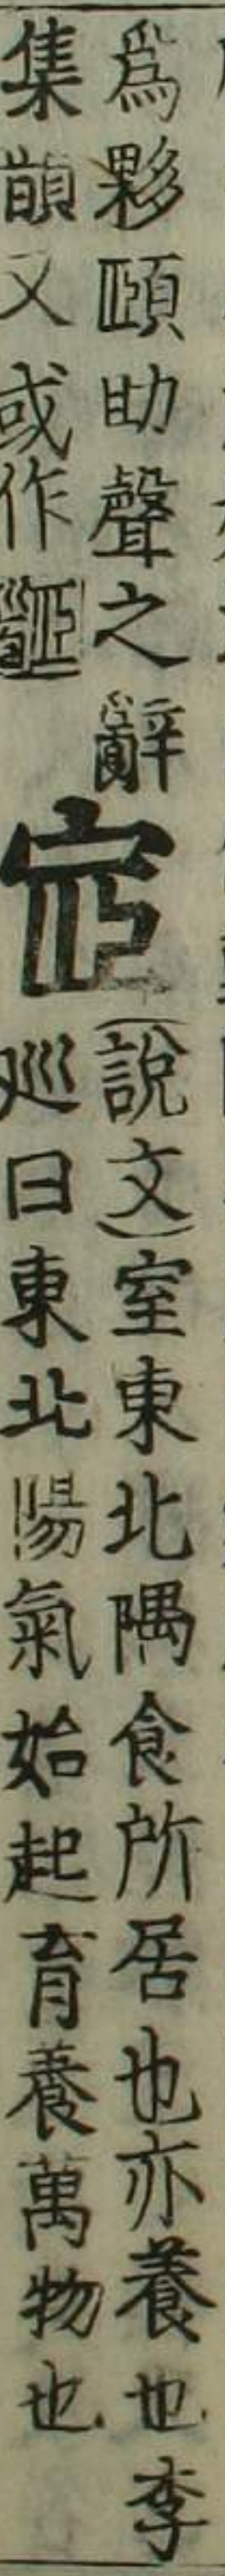 爲夥頤助聲之辭
集韻又或作𩠡
宧
(說文)室東北隅食所居也亦養也李
巡曰東北陽氣始起育養萬物也